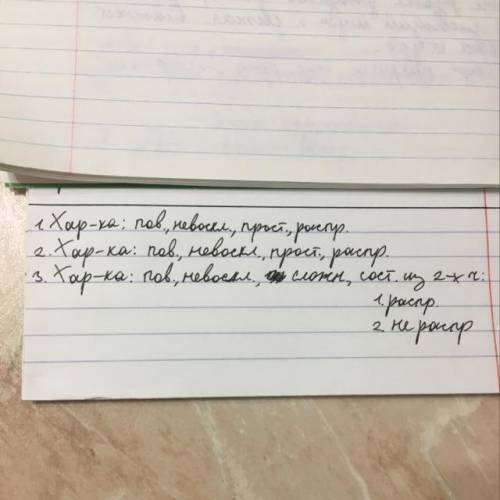 1. Хар-ка: пов., невоскл., прост., распр.
2. Хар-ка: пов., невоскл., прост., распр.
3. Хар-ка: пов., невоскл., сложн., сост. из 2-х ч:
1. распр.
2. не распр